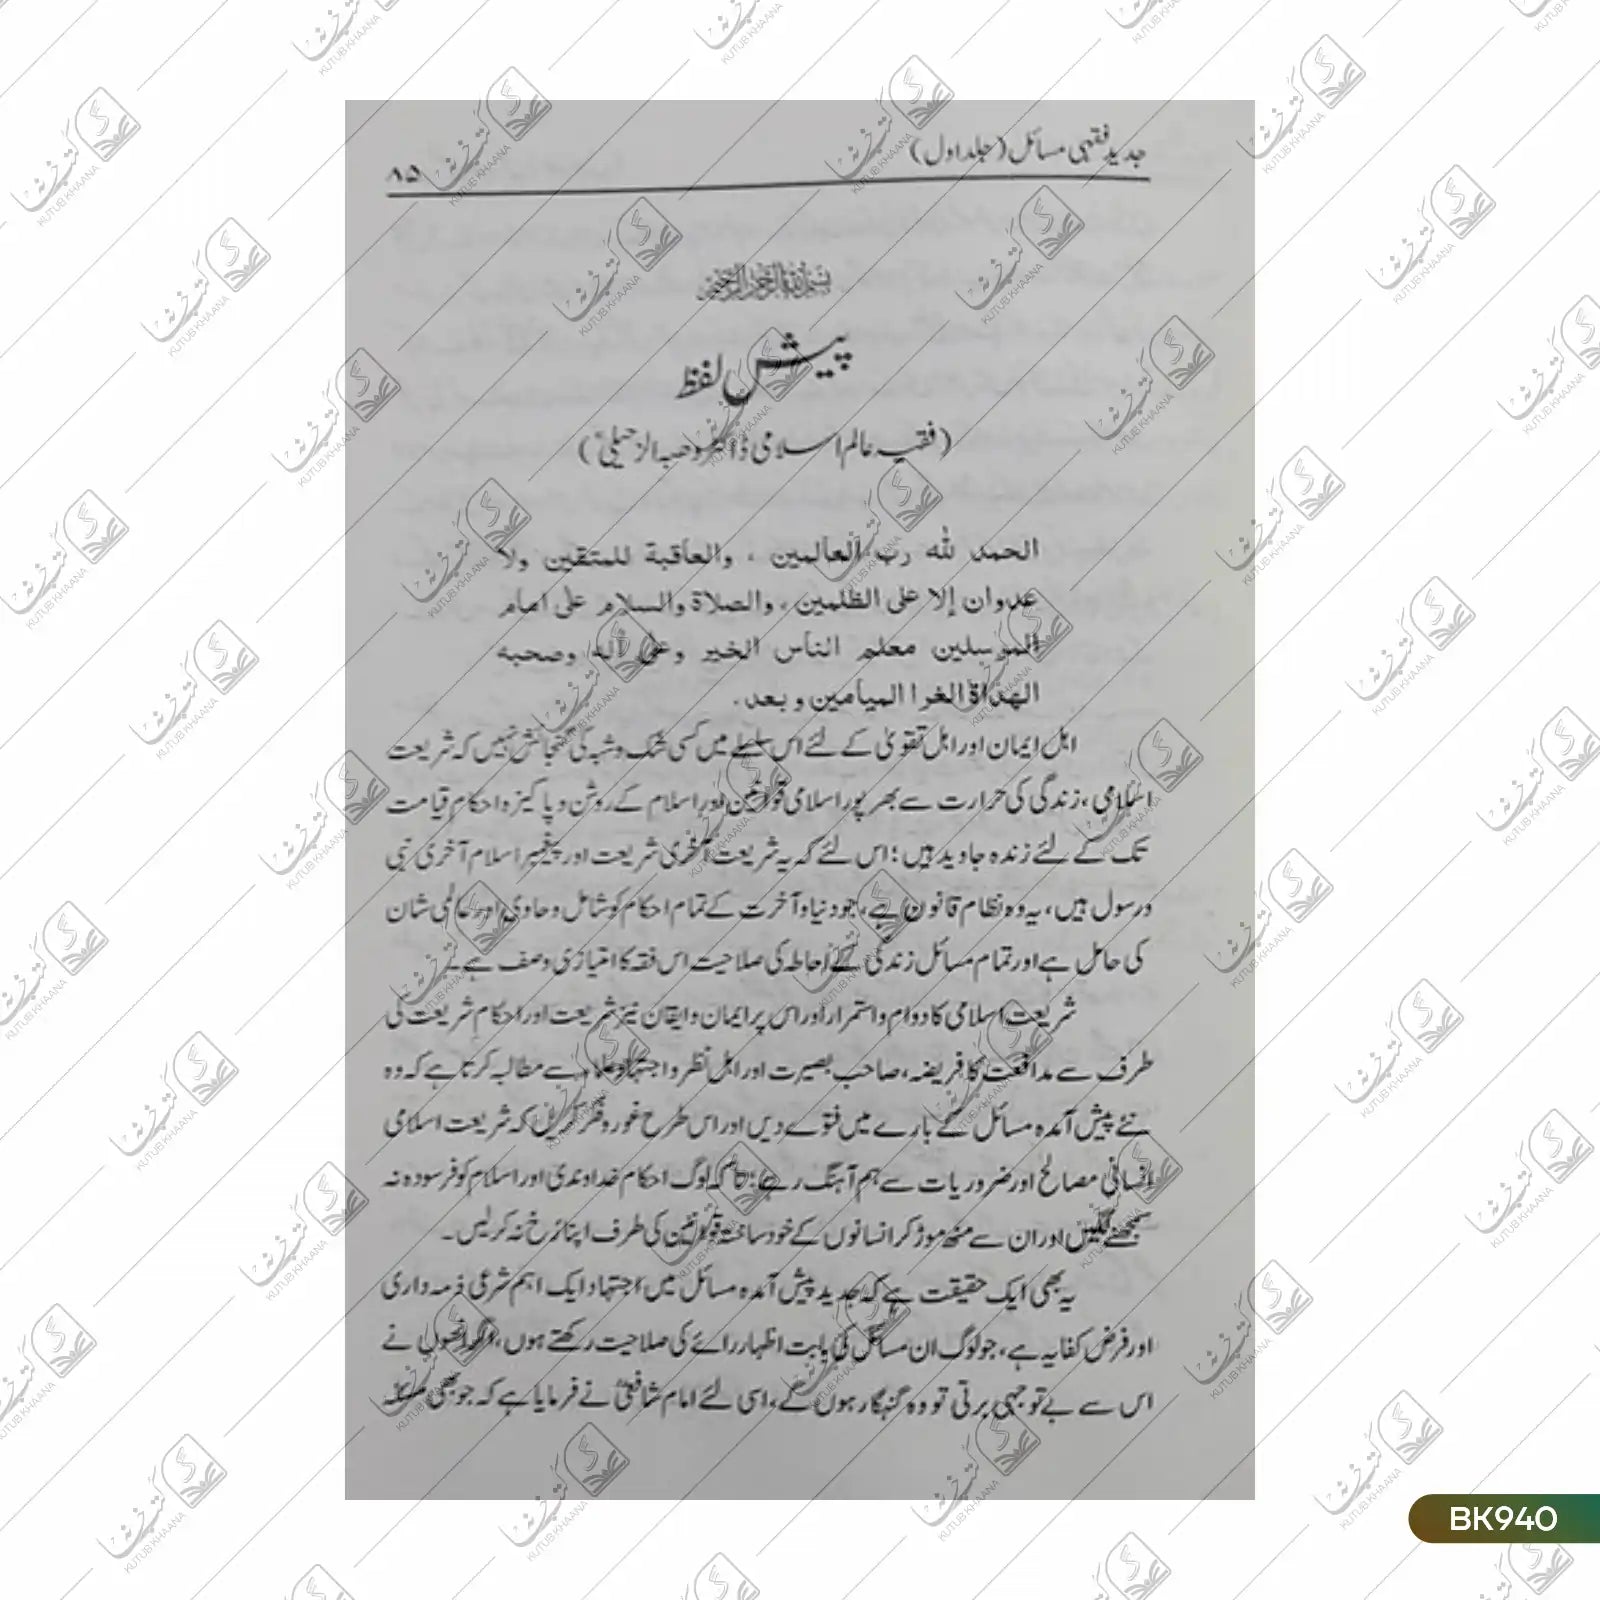 جدید فقہی مسائل (جلد اول)
۸۵
بسم اللہ الرحمن الرحیم
پیش لفظ
(فقیہ عالم اسلامی ڈاکٹر وھبہ الزحیلیؒ)
الحمد لله رب العالمين ، والعاقبة للمتقين ولا
عدوان إلا على الظلمين ، والصلاة والسلام على امام
المرسلين معلم الناس الخير وعلى آله وصحبه
الهداة الغر الميامين وبعد۔
اہل ایمان اور اہل تقویٰ کے لئے اس سلسلے میں کسی شک وشبہ کی گنجائش نہیں کہ شریعت
اسلامی ، زندگی کی حرارت سے بھرپور اسلامی قوانین اور اسلام کے روشن و پاکیزہ احکام قیامت
تک کے لئے زندہ جاوید ہیں؛ اس لئے کہ یہ شریعت آخری شریعت اور پیغمبر اسلام آخری نبی
ورسول ہیں، یہ وہ نظام قانون ہے، جو دنیا و آخرت کے تمام احکام کو شامل و حاوی اور عالمی شان
کی حامل ہے اور تمام مسائل زندگی کے احاطہ کی صلاحیت اس فقہ کا امتیازی وصف ہے۔
شریعت اسلامی کا دوام و استمرار اور اس پر ایمان و ایقان نیز شریعت اور احکام شریعت کی
طرف سے مدافعت کا فریضہ، صاحب بصیرت اور اہل نظر و اجتہاد علماء سے مطالبہ کرتا ہے کہ وہ
نئے پیش آمدہ مسائل کے بارے میں فتوے دیں اور اس طرح غور وفکر کریں کہ شریعت اسلامی
انسانی مصالح اور ضروریات سے ہم آہنگ رہے؛ تاکہ لوگ احکام خداوندی اور اسلام کو فرسودہ نہ
سمجھنے لگیں اور ان سے منھ موڑ کر انسانوں کے خود ساختہ قوانین کی طرف اپنا رخ نہ کرلیں۔
یہ بھی ایک حقیقت ہے کہ جدید پیش آمدہ مسائل میں اجتہاد ایک اہم شرعی ذمہ داری
اور فرض کفایہ ہے، جو لوگ ان مسائل کی بابت اظہار رائے کی صلاحیت رکھتے ہوں، اگر انھوں نے
اس سے بے توجہی برتی تو وہ گنہگار ہوں گے، اسی لئے امام شافعیؒ نے فرمایا ہے کہ جو بھی مسئلہ
کتب خانہ
KUTUB KHAANA
BK940